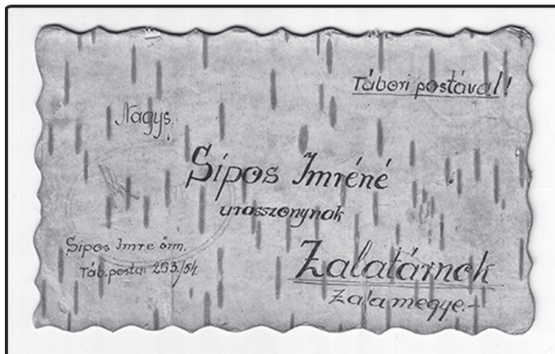 Tábori postával!
Nagys.
Sipos Imréné
urasszonynak
Sipos Imre őrm.
Táb. posta: 293/54.
Zalatárnok
Zala megye.-